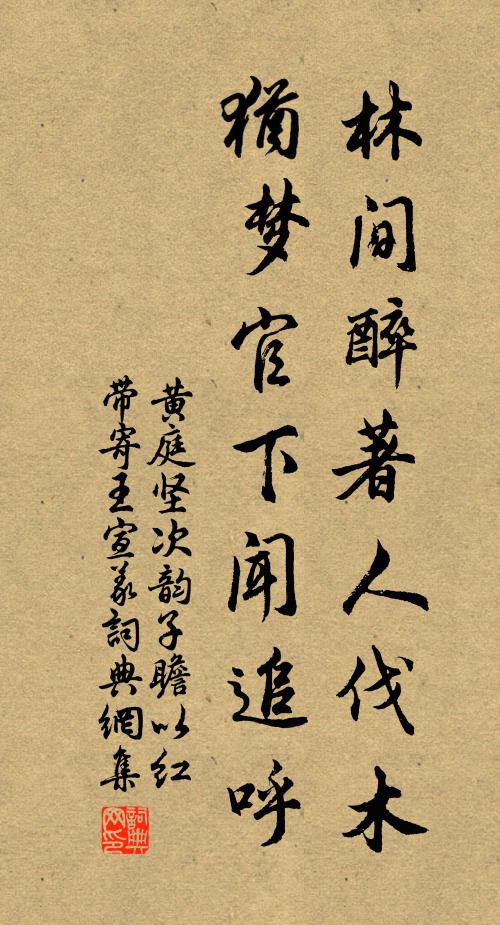 林间醉著人伐木
犹梦官下闻追呼
黄庭坚次韵子瞻以红
带寄王宣义詞典網集
詞典
网印